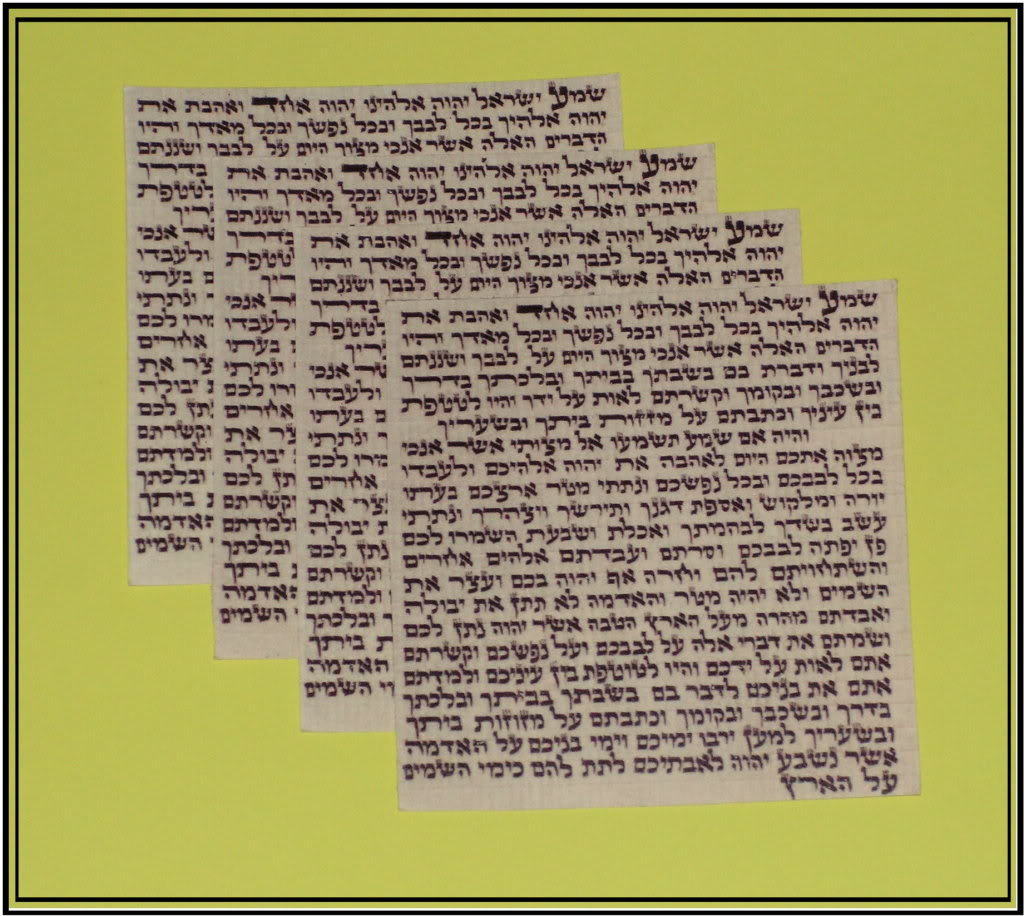 שמע ישראל יהוה אלהינו יהוה אחד ואהבת את
יהוה אלהיך בכל לבבך ובכל נפשך ובכל מאדך והיו
הדברים האלה אשר אנכי מצוך היום על לבבך ושננתם
בדרך
לטטפת
אנכי
ולעבדו
בעתו
ונתתי
לכם
אחרים
את
יבולה
נתן לכם
וקשרתם
ולמדתם
ובלכתך
ביתך
האדמה
השמים
שמע ישראל יהוה אלהינו יהוה אחד ואהבת את
יהוה אלהיך בכל לבבך ובכל נפשך ובכל מאדך והיו
הדברים האלה אשר אנכי מצוך היום על לבבך ושננתם
בדרך
לטטפת
אנכי
ולעבדו
בעתו
ונתתי
לכם
אחרים
את
יבולה
לכם
וקשרתם
ולמדתם
ובלכתך
ביתך
האדמה
השמים
שמע ישראל יהוה אלהינו יהוה אחד ואהבת את
יהוה אלהיך בכל לבבך ובכל נפשך ובכל מאדך והיו
הדברים האלה אשר אנכי מצוך היום על לבבך ושננתם
בדרך
לטטפת
אנכי
ולעבדו
בעתו
ונתתי
לכם
אחרים
את
יבולה
נתן לכם
וקשרתם
ולמדתם
ובלכתך
ביתך
האדמה
השמים
שמע ישראל יהוה אלהינו יהוה אחד ואהבת את
יהוה אלהיך בכל לבבך ובכל נפשך ובכל מאדך והיו
הדברים האלה אשר אנכי מצוך היום על לבבך ושננתם
לבניך ודברת בם בשבתך בביתך ובלכתך בדרך
ובשכבך ובקומך וקשרתם לאות על ידך והיו לטטפת
בין עיניך וכתבתם על מזזות ביתך ובשעריך
והיה אם שמע תשמעו אל מצותי אשר אנכי
מצוה אתכם היום לאהבה את יהוה אלהיכם ולעבדו
בכל לבבכם ובכל נפשכם ונתתי מטר ארצכם בעתו
יורה ומלקוש ואספת דגנך ותירשך ויצהרך ונתתי
עשב בשדך לבהמתך ואכלת ושבעת השמרו לכם
פן יפתה לבבכם וסרתם ועבדתם אלהים אחרים
והשתחויתם להם וחרה אף יהוה בכם ועצר את
השמים ולא יהיה מטר והאדמה לא תתן את יבולה
ואבדתם מהרה מעל הארץ הטבה אשר יהוה נתן לכם
ושמתם את דברי אלה על לבבכם ועל נפשכם וקשרתם
אתם לאות על ידכם והיו לטוטפת בין עיניכם ולמדתם
אתם את בניכם לדבר בם בשבתך בביתך ובלכתך
בדרך ובשכבך ובקומך וכתבתם על מזוזות ביתך
ובשעריך למען ירבו ימיכם וימי בניכם על האדמה
אשר נשבע יהוה לאבתיכם לתת להם כימי השמים
על הארץ